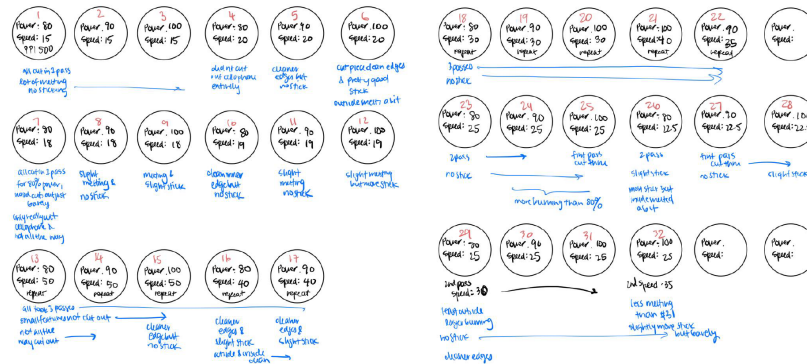 1
Power: 80
Speed: 15
PPI 500
2
Power: 90
Speed: 15
3
Power: 100
Speed: 15
4
Power: 80
Speed: 20
5
Power: 90
Speed: 20
6
Power: 100
Speed: 20
all cut in 2 pass
lot of melting
no sticking
didn't cut
out cellophane
entirely
cleaner
edges but
no stick
cut piece clean edges
& pretty good
stick
outside melt a bit
7
Power: 80
Speed: 18
8
Power: 90
Speed: 18
9
Power: 100
Speed: 18
10
Power: 80
Speed: 19
11
Power: 90
Speed: 19
12
Power: 100
Speed: 19
all cut in 2 pass
for 80% power,
cut out just
barely
only really cut
cellophane &
not all the way
slight
melting &
no stick
melting &
slight stick
clean inner
edge but
no stick
slight
melting
no stick
slight melting
but more stick
13
Power: 80
Speed: 50
repeat
14
Power: 90
Speed: 50
repeat
15
Power: 100
Speed: 50
repeat
16
Power: 80
Speed: 40
repeat
17
Power: 90
Speed: 40
repeat
all took 3 passes
small features not cut out
not all the
way cut out
cleaner
edge but
no stick
cleaner
edges &
slight stick
outside & inside
clean
cleaner
edges &
slight stick
18
Power: 80
Speed: 30
repeat
19
Power: 90
Speed: 30
repeat
20
Power: 100
Speed: 30
repeat
21
Power: 100
Speed: 40
repeat
22
Power: 90
Speed: 35
repeat
Power:
Speed:
3 passes
no stick
23
Power: 80
Speed: 25
24
Power: 90
Speed: 25
25
Power: 100
Speed: 25
26
Power: 80
Speed: 22.5
27
Power: 90
Speed: 22.5
28
Power: 100
Speed: 22.5
2 pass
no stick
first pass
cut thru
more burning than 80%
2 pass
slight stick
most stick but
inside melted
a bit
first pass
cut thru
no stick
slight stick
29
Power: 80
Speed: 25
30
Power: 90
Speed: 25
31
Power: 100
Speed: 25
32
Power: 100
Speed: 25
Power:
Speed:
Power:
Speed:
2nd pass
speed: 30
least outside
edges burning
no stick
cleaner edges
2nd speed: 35
less melting
than #31
slightly more stick
but barely